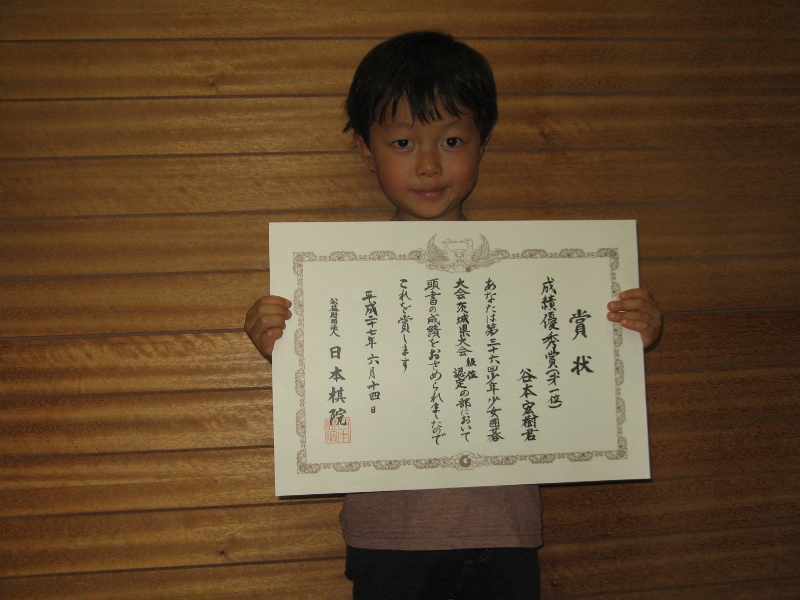 賞状
成績優秀賞(才一位)
谷本宏樹君
あなたは第三十六回少年少女囲碁
大会茨城県大会級位認定の部において
頭書の成績をおさめられましたので
これを賞します
平成二十七年六月十四日
公益財団法人日本棋院